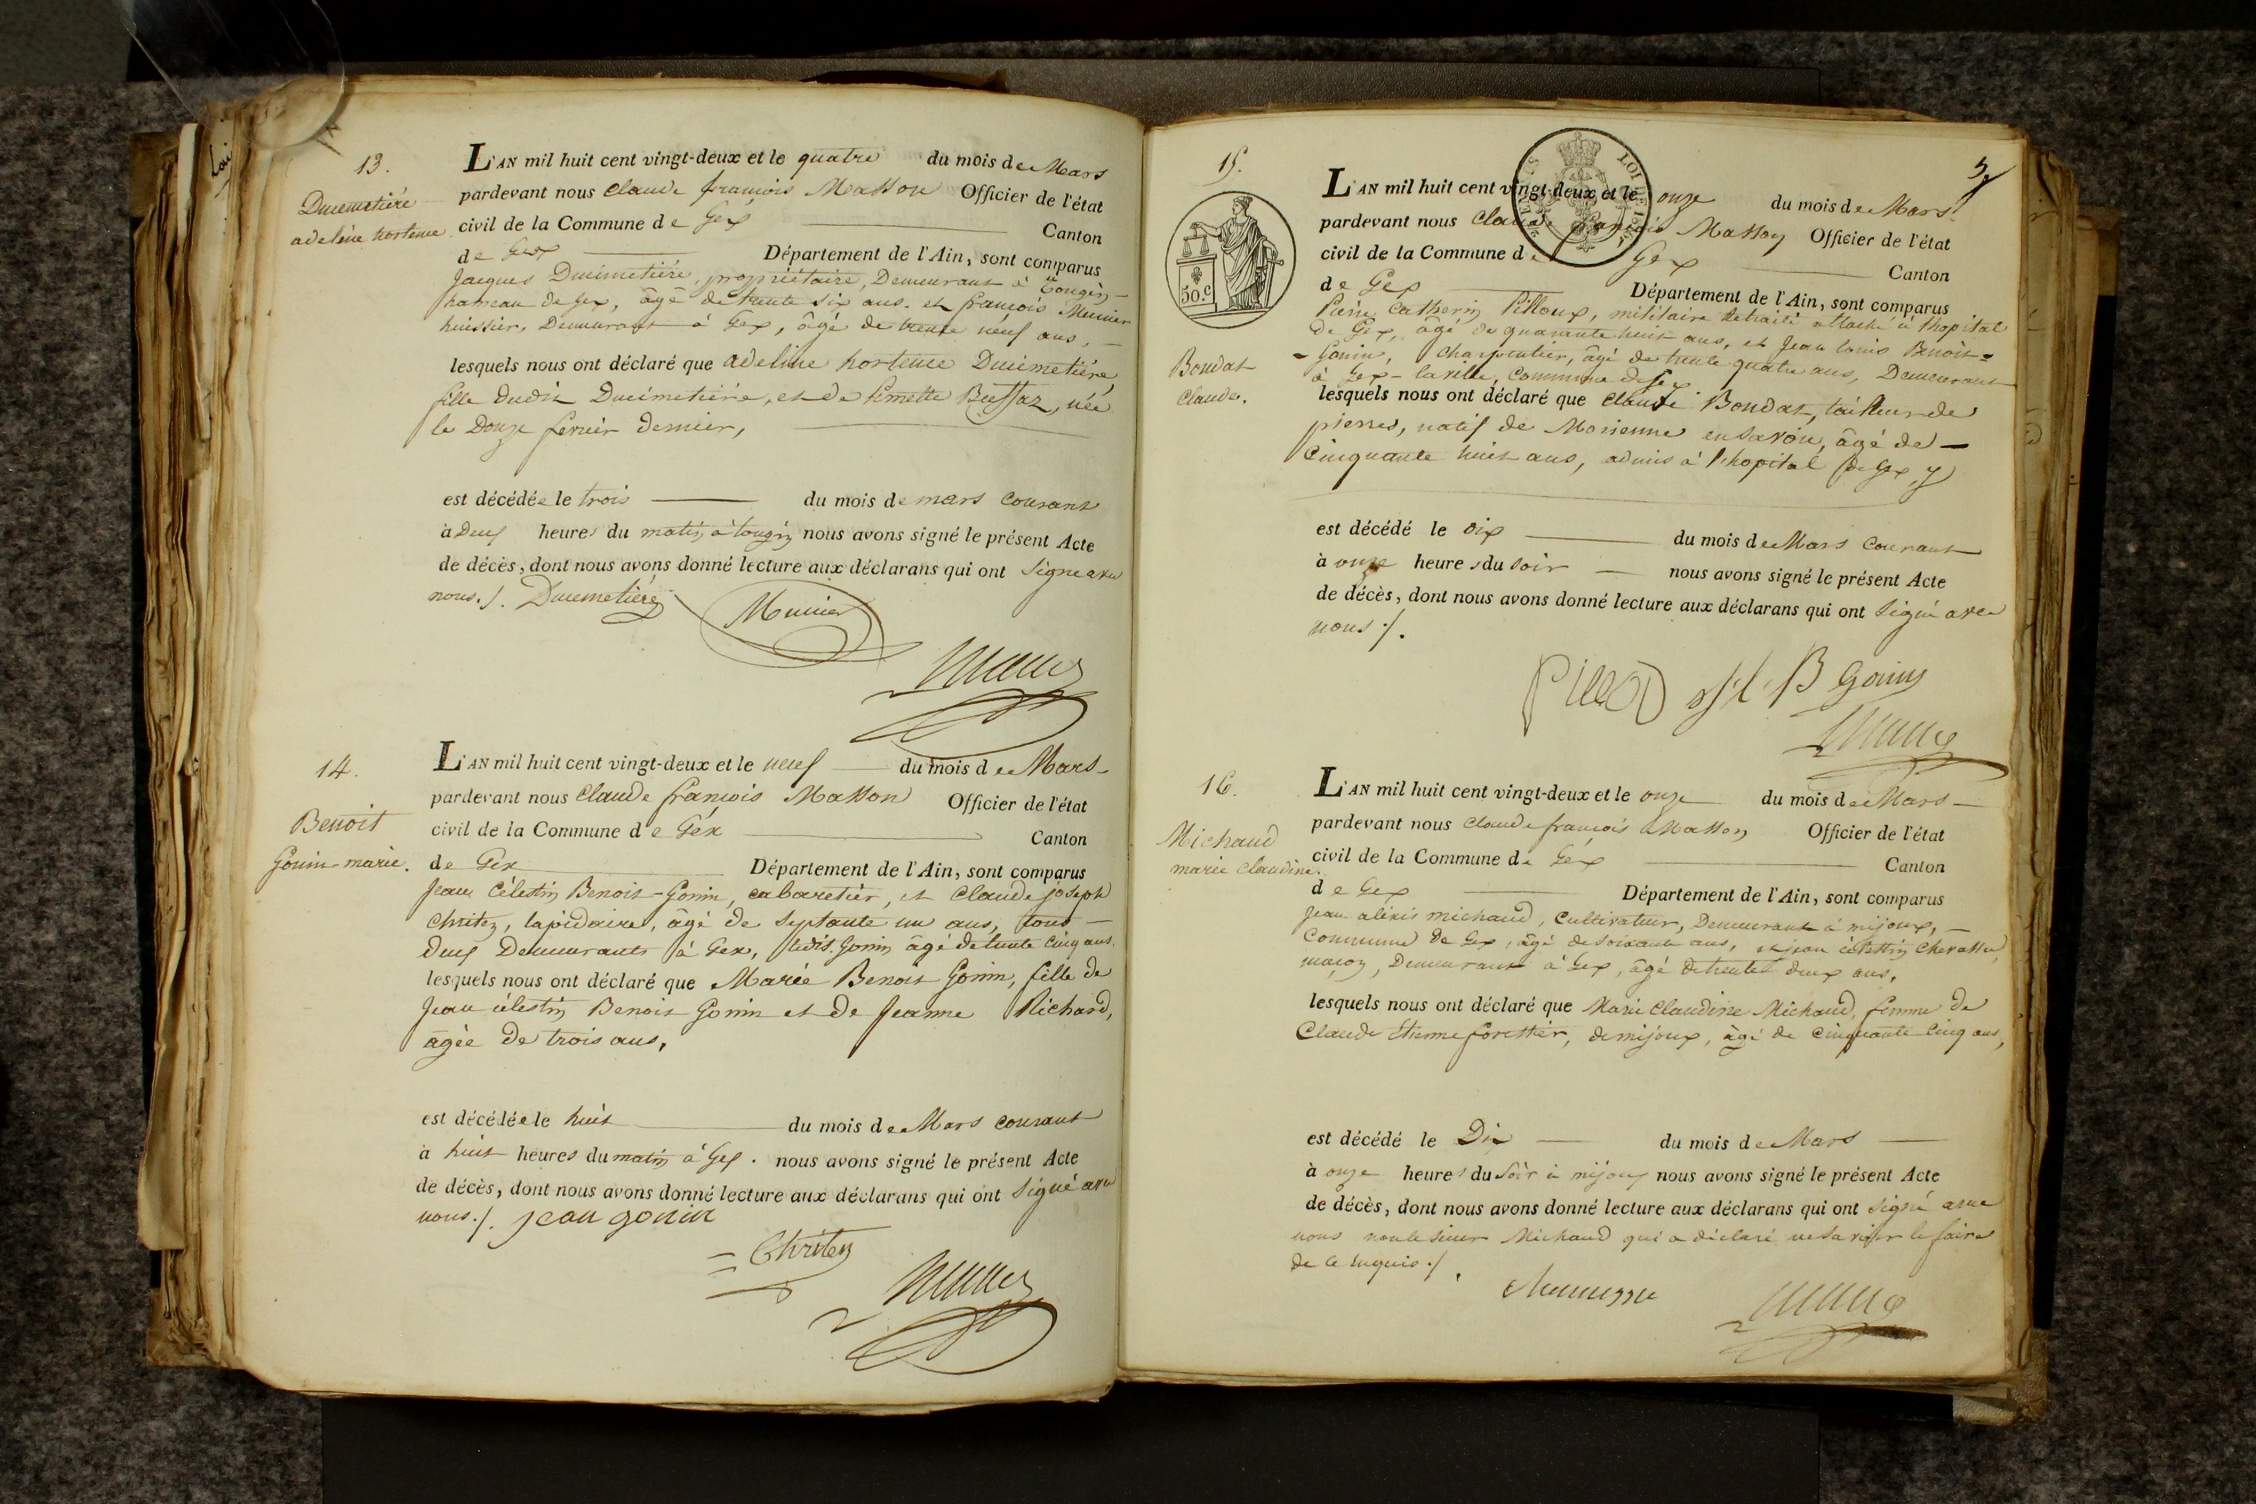 13.
Ducimetière
adeline hortense
L'AN mil huit cent vingt-deux et le quatre du mois de Mars
pardevant nous Claude françois Masson Officier de l'état
civil de la Commune de Gex Canton
de Gex Département de l'Ain, sont comparus
Jacques Ducimetière, propriétaire, Demeurant à Tougin
hameau de Gex, âgé de trente six ans. et françois Munier
huissier, Demeurant à Gex, âgé de trente neuf ans,
lesquels nous ont déclaré que adeline hortense Ducimetière,
fille dudit Ducimetière, et de Pernette Bussaz, née
le Douze fevrier dernier,
est décédée le trois du mois de mars courant
à Deux heures du matin à tougin nous avons signé le présent Acte
de décès, dont nous avons donné lecture aux déclarans qui ont signé avec
nous ./. Ducimetière Munier
14.
Benoit
Gonin marie.
L'AN mil huit cent vingt-deux et le neuf du mois de Mars
pardevant nous Claude françois Masson Officier de l'état
civil de la Commune de Géx Canton
de Géx Département de l'Ain, sont comparus
Jean Célestin Benoit-Gonin, cabaretier, et Claude joseph
Chritez, lapidaire, âgé de septante un ans, tous
Deux Demeurants à Gex, ledit Gonin âgé de trente cinq ans.
lesquels nous ont déclaré que Marie Benoit Gonin, fille de
Jean célestin Benoit Gonin et de Jeanne Richard,
âgée de trois ans,
est décédée le huit du mois de Mars courant
à huit heures du matin à Gex. nous avons signé le présent Acte
de décès, dont nous avons donné lecture aux déclarans qui ont signé avec
nous ./. jean gonin
Chritez
15.
50.c
Boudat
Claude.
L'AN mil huit cent vingt-deux et le onze du mois de Mars
pardevant nous Claude françois Masson Officier de l'état
civil de la Commune de Gex Canton
de Gex Département de l'Ain, sont comparus
Pierre Catherin Pilloux, militaire Retraité attaché à l'hopital
de Gex, âgé de quarante huit ans, et Jean Louis Benoit-
Gonin, Charpentier, âgé de trente quatre ans, Demeurant
à Gex-la-ville, commune de Gex.
lesquels nous ont déclaré que Claude Boudat, tailleur de
pierres, natif de Morienne en Savoie, âgé de
Cinquante huit ans, admis à l'hopital de Gex, y
est décédé le dix du mois de Mars courant
à onze heures du soir nous avons signé le présent Acte
de décès, dont nous avons donné lecture aux déclarans qui ont signé avec
nous ./.
B Gonin
16.
Michaud
marie claudine.
L'AN mil huit cent vingt-deux et le onze du mois de Mars
pardevant nous Claude françois Masson Officier de l'état
civil de la Commune de Géx Canton
de Gex Département de l'Ain, sont comparus
Jean aléxis michaud, Cultivateur, Demeurant à mijoux,
Commune de Gex, âgé de soixante ans, et jean célestin Chevassu,
maçon, Demeurant à Gex, âgé de trente deux ans,
lesquels nous ont déclaré que Marie Claudine Michaud, femme de
Claude Etienne forestier, de mijoux, âgé de cinquante cinq ans,
est décédé le Dix du mois de Mars
à onze heures du soir à mijoux nous avons signé le présent Acte
de décès, dont nous avons donné lecture aux déclarans qui ont signé avec
nous non le sieur Michaud qui a déclaré ne savoir le faire
de ce requis ./.